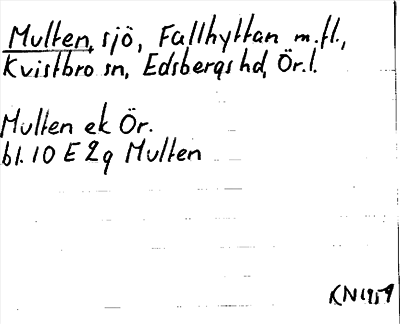 Multen, sjö, Fallhyttan m.fl.,
Kvistbro sn, Edsbergs hd, Ör.l.
Multen ek Ör.
bl. 10 E 2g Multen
KN 1959